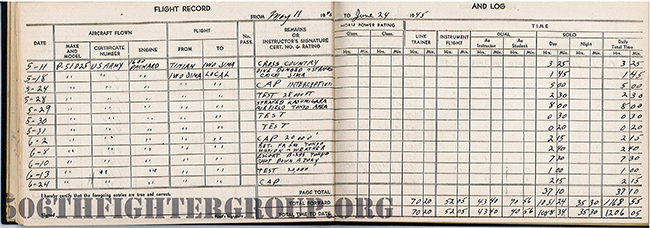 FLIGHT RECORD AND LOG
FROM May 11 TO June 24 1945
DATE AIRCRAFT FLOWN FLIGHT No. PASS. REMARKS OR INSTRUCTOR'S SIGNATURE CERT. NO. & RATING HORSE POWER RATING TIME
MAKE AND MODEL CERTIFICATE NUMBER ENGINE FROM TO Class. Class. LINK TRAINER INSTRUMENT FLIGHT DUAL SOLO Daily Total Time
As Instructor As Student Day Night
Hr. Min. Hr. Min. Hr. Min. Hr. Min. Hr. Min. Hr. Min. Hr. Min. Hr. Min. Hr. Min.
5-11 P-51D25 US ARMY PACKARD TINIAN IWO JIMA CROSS COUNTRY 3 25 3 25
5-18 " " " IWO JIMA LOCAL DIVE BOMBED & STRAFED CHICHI JIMA 1 45 1 45
5-24 " " " " " CAP INTERCEPTION 5 00 5 00
5-28 " " " " " TEST 2 30 2 30
5-29 " " " " " STRAFED AIRFIELD TOKYO AREA 8 00 8 00
5-30 " " " " " TEST 0 30 0 30
5-31 " " " " " TEST 0 20 0 20
6-2 " " " " " CAP 20000' 2 15 2 15
" " " " " WEATHER 2 40 2 40
6-10 " " " " " ESCORT B-29S TOKYO SHOT DOWN A TONY 7 30 7 30
6-13 " " " " " TEST 1 00 1 00
6-24 " " " " " CAP 2 15 2 15
I hereby certify that the foregoing entries are true and correct. PAGE TOTAL 37 10 37 10
TOTAL FORWARD 70 20 52 05 43 40 70 56 1051 24 35 30 1168 55
TOTAL TIME TO DATE 70 20 52 05 43 40 70 56 1088 34 35 30 1206 05
506THFIGHTERGROUP.ORG